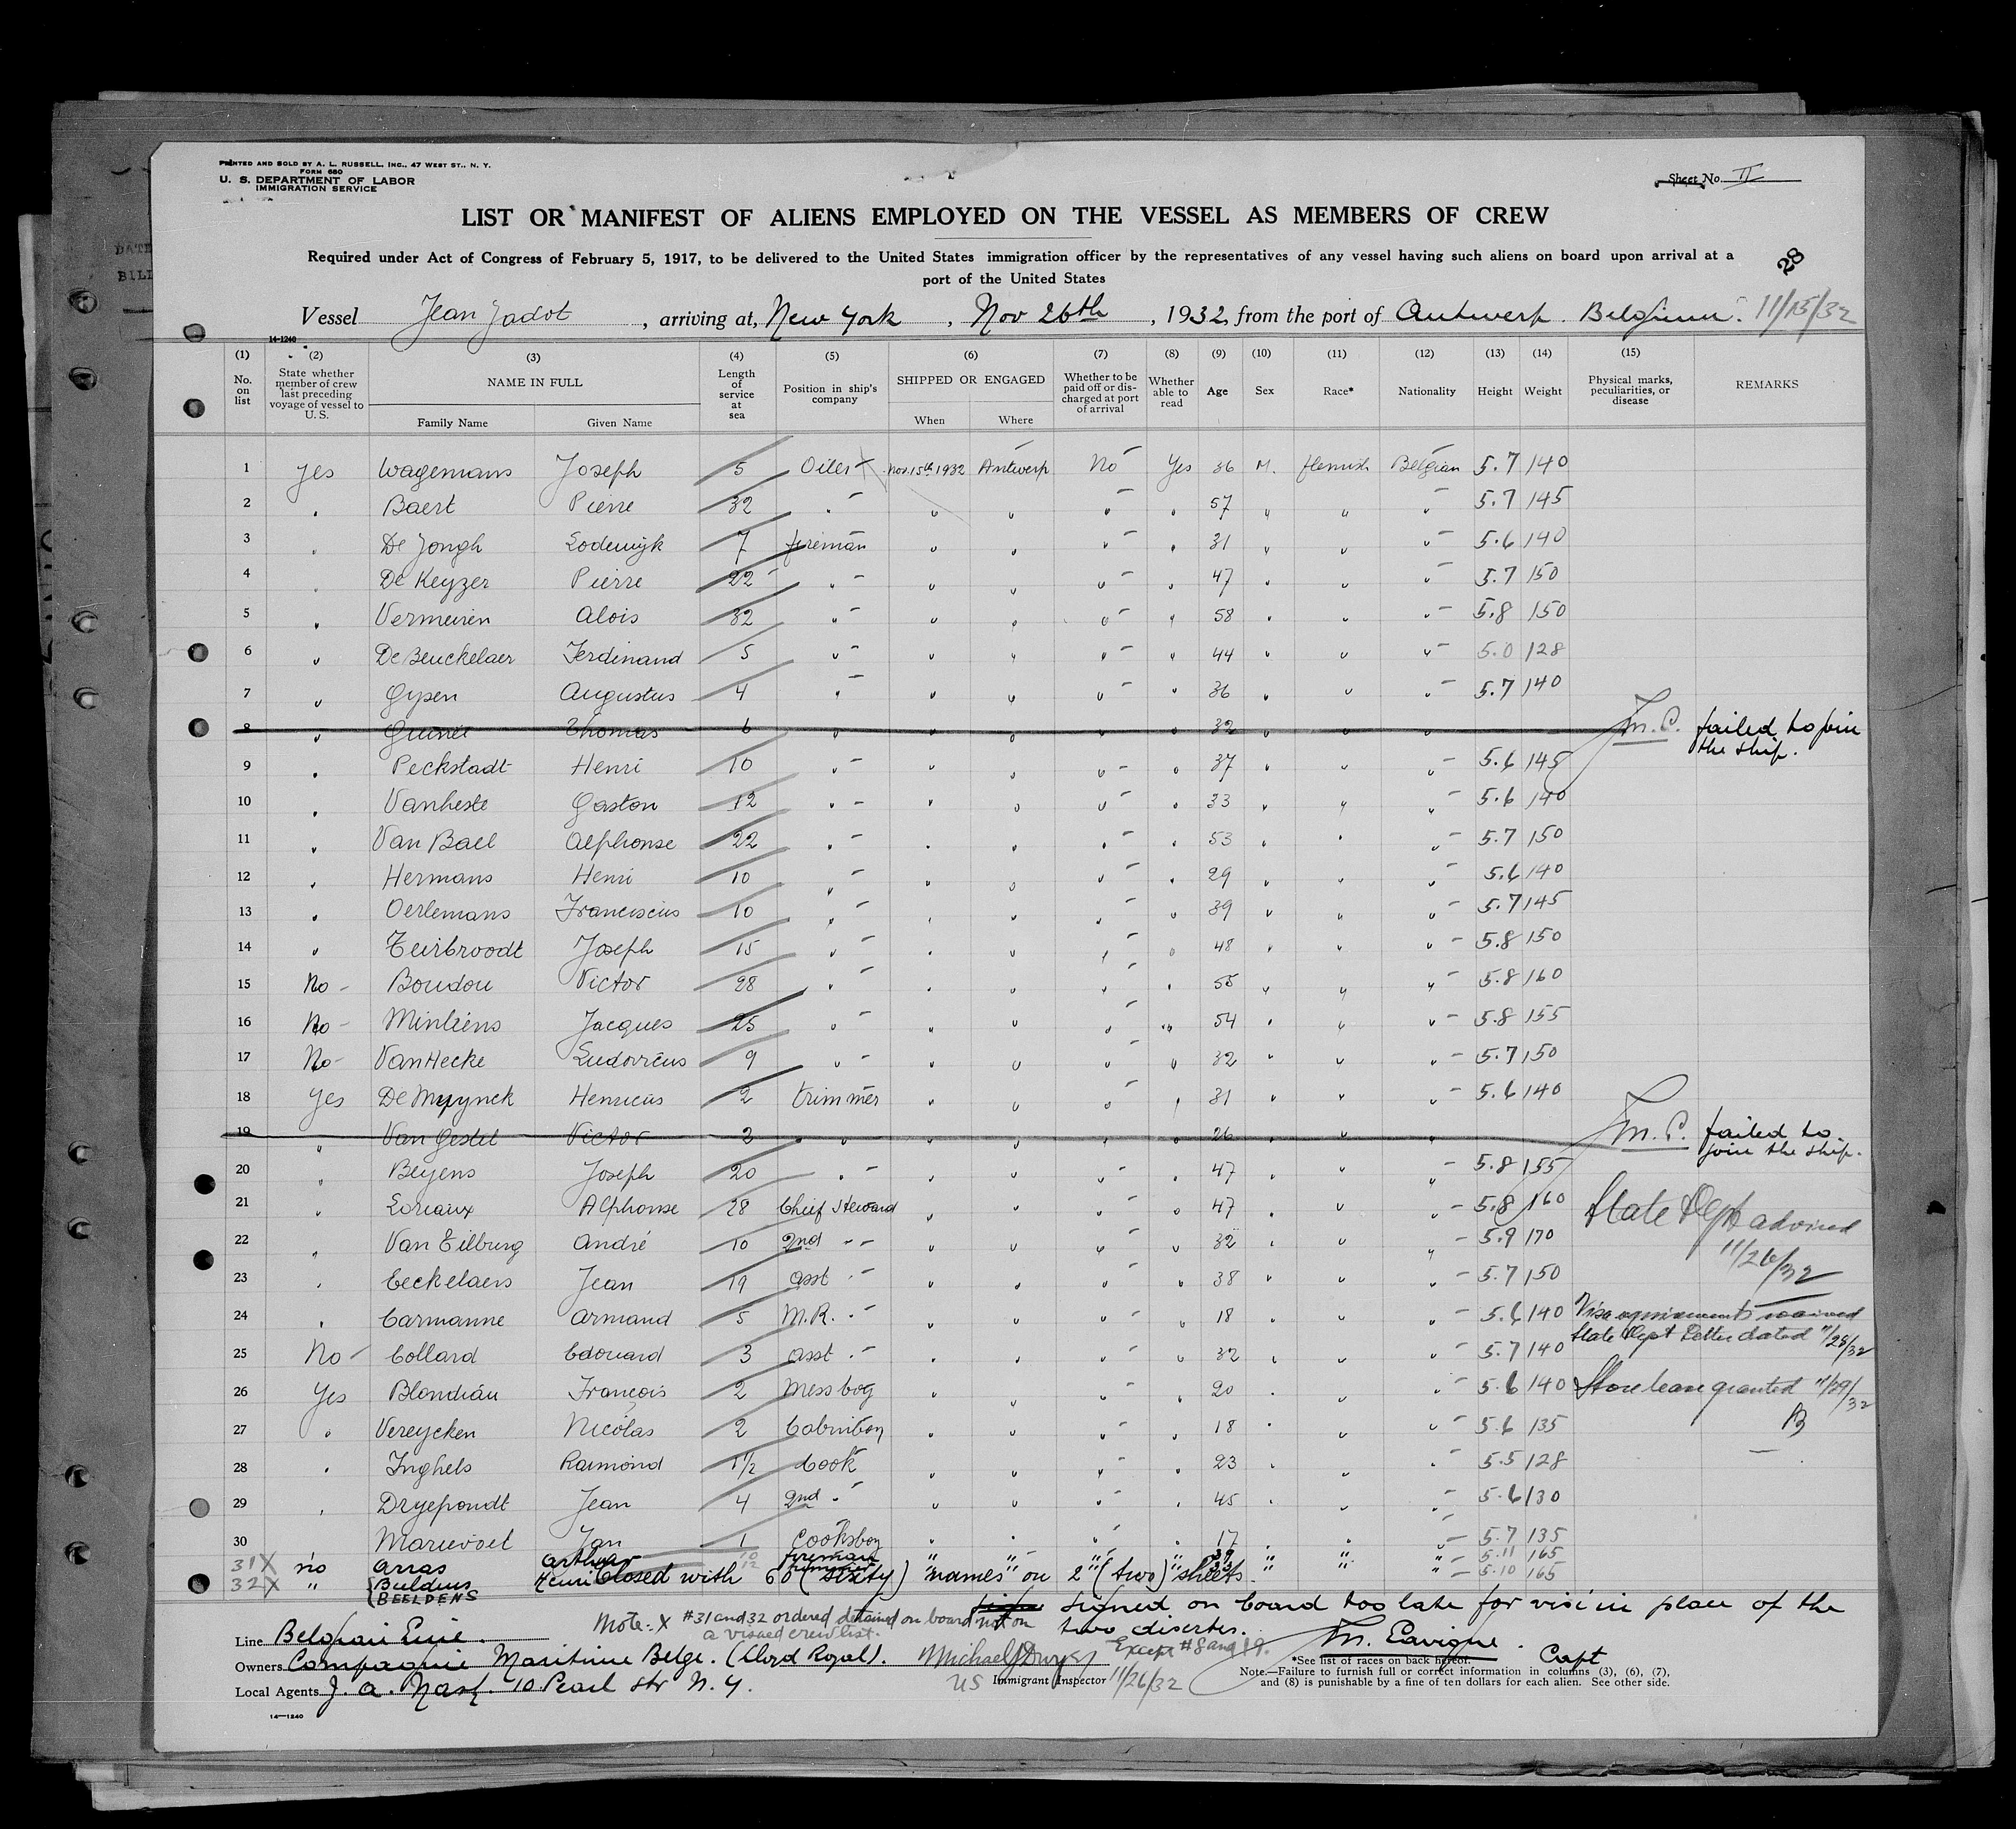 PRINTED AND SOLD BY A. L. RUSSELL, INC., 47 WEST ST., N. Y.
FORM 680
U. S. DEPARTMENT OF LABOR
IMMIGRATION SERVICE
Sheet No. II
LIST OR MANIFEST OF ALIENS EMPLOYED ON THE VESSEL AS MEMBERS OF CREW
Required under Act of Congress of February 5, 1917, to be delivered to the United States immigration officer by the representatives of any vessel having such aliens on board upon arrival at a
port of the United States
28
Vessel Jean Jadot, arriving at, New York, Nov 26th, 1932, from the port of Antwerp. Belgium. 11/15/32
14-1240
(1) (2) (3) (4) (5) (6) (7) (8) (9) (10) (11) (12) (13) (14) (15)
No. on list State whether member of crew last preceding voyage of vessel to U.S. NAME IN FULL Family Name Given Name Length of service at sea Position in ship's company SHIPPED OR ENGAGED When Where Whether to be paid off or discharged at port of arrival Whether able to read Age Sex Race* Nationality Height Weight Physical marks, peculiarities, or disease REMARKS
1 Yes Wagemans Joseph 5 Oiler Nov. 15th 1932 Antwerp No Yes 36 M. flemish Belgian 5.7 140
2 " Baert Pierre 32 " " " " " 57 " " " 5.7 145
3 " De Jongh Lodewijk 7 fireman " " " " 31 " " " 5.6 140
4 " De Keyzer Pierre 22 " " " " " 47 " " " 5.7 150
5 " Vermeiren Alois 32 " " " " " 58 " " " 5.8 150
6 " De Beuckelaer Ferdinand 5 " " " " " 44 " " " 5.0 128
7 " Gysen Augustus 4 " " " " " 36 " " " 5.7 140
8 " Thomas 6 " " " " " 32 " " " failed to join the ship.
9 " Peckstadt Henri 10 " " " " " 37 " " " 5.6 145
10 " Vanheste Gaston 12 " " " " " 33 " " " 5.6 140
11 " Van Bael Alphonse 22 " " " " " 53 " " " 5.7 150
12 " Hermans Henri 10 " " " " " 29 " " " 5.6 140
13 " Oerlemans Franciscus 10 " " " " " 39 " " " 5.7 145
14 " Teirbroodt Joseph 15 " " " " " 48 " " " 5.8 150
15 No Boudou Victor 28 " " " " " 55 " " " 5.8 160
16 No Mintiens Jacques 25 " " " " " 54 " " " 5.8 155
17 No Van Hecke Ludovicus 9 " " " " " 32 " " " 5.7 150
18 Yes De Muynck Henricus 2 trimmer " " " " 31 " " " 5.6 140
19 " Van Gestel Victor 2 " " " " " 26 " " " failed to join the ship.
20 " Beyens Joseph 20 " " " " " 47 " " " 5.8 155
21 " Loriaux Alphonse 28 Chief Steward " " " " 47 " " " 5.8 160 State Dept advised
22 " Van Tilburg André 10 2nd " " " " " 32 " " " 5.9 170 11/26/32
23 " Eeckelaers Jean 19 asst " " " " " 38 " " " 5.7 150
24 " Carmanne Armand 5 M.R. " " " " " 18 " " " 5.6 140 Visa requirements waived
25 No Collard Edouard 3 asst " " " " " 32 " " " 5.7 140 State Dept Letter dated 11/28/32
26 Yes Blondiau François 2 Messboy " " " " 20 " " " 5.6 140 Shore leave granted 11/29/32
27 " Vereycken Nicolas 2 Cabinboy " " " " 18 " " " 5.6 135
28 " Inghels Raimond 1 1/2 Cook " " " " 23 " " " 5.5 128
29 " Dryepondt Jean 4 2nd " " " " " 45 " " " 5.6 130
30 Marievoet Jan 1 Cooksboy " " " " 17 " " " 5.7 135
31 X no Arras Arthur 10 fireman " " " " 39 " " " 5.11 165
32 X " Beeldens Henri 12 trimmer " " " " " " " 5.10 165
BEELDENS
Closed with 60 (sixty) names on 2 (two) sheets.
signed on board too late for visé in place of the
two diserters.
Note: X #31 and 32 ordered detained on board not on
a visaed crew list.
Except #8 and 19.
Line Belgian Line.
Owners Compagnie Maritime Belge. (Lloyd Royal).
Local Agents J. A. Nash. 10 Pearl Str N. Y.
US Immigrant Inspector 11/26/32
M. Lavigne. Capt
*See list of races on back hereof.
Note.—Failure to furnish full or correct information in columns (3), (6), (7),
and (8) is punishable by a fine of ten dollars for each alien. See other side.
14—1240